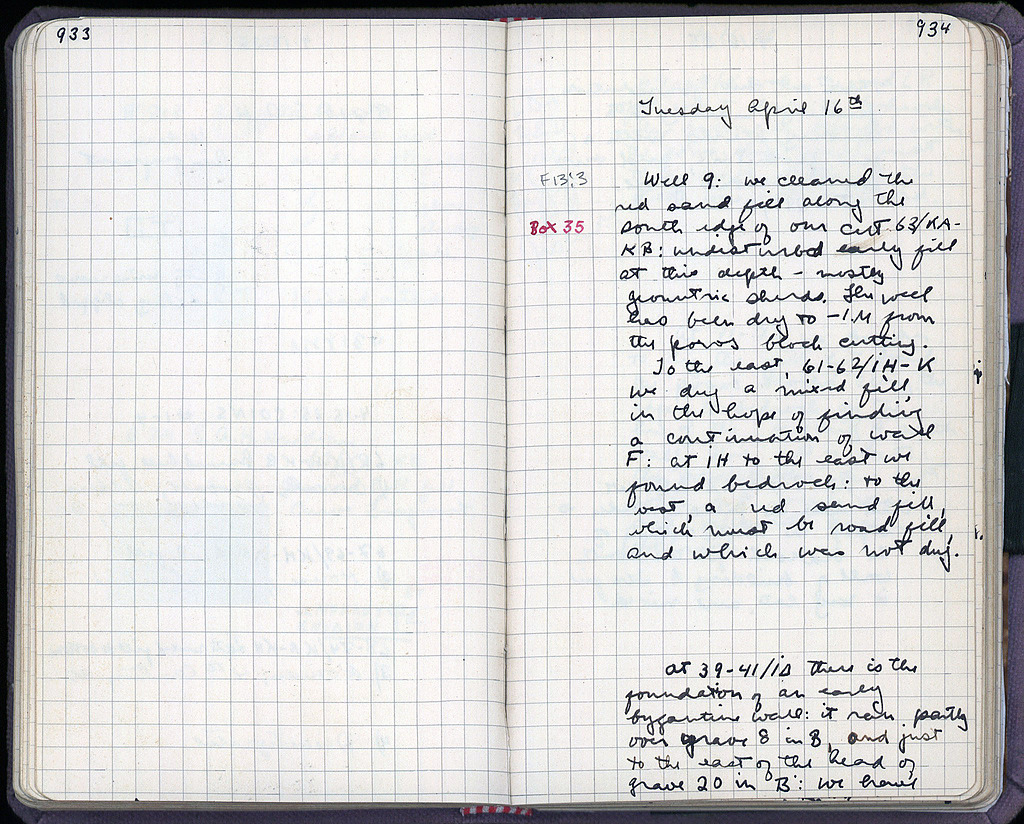 933
934
Tuesday April 16th
F13:3
Well 9: we cleaned the
red sand fill along the
Box 35
south edge of our cut 63/KA-
KB: undisturbed early fill
at this depth - mostly
geometric sherds. The well
has been dug to -1.M from
the poros block cutting.
To the east, 61-62/IH-K
we dug a mixed fill,
in the hope of finding
a continuation of wall
F: at IH to the east we
found bedrock: to the
west, a red sand fill,
which must be road fill,
and which was not dug.
At 39-41/ΙΔ there is the
foundation of an early
byzantine wall: it ran partly
over grave 8 in B, and just
to the east of the head of
grave 20 in B: we have